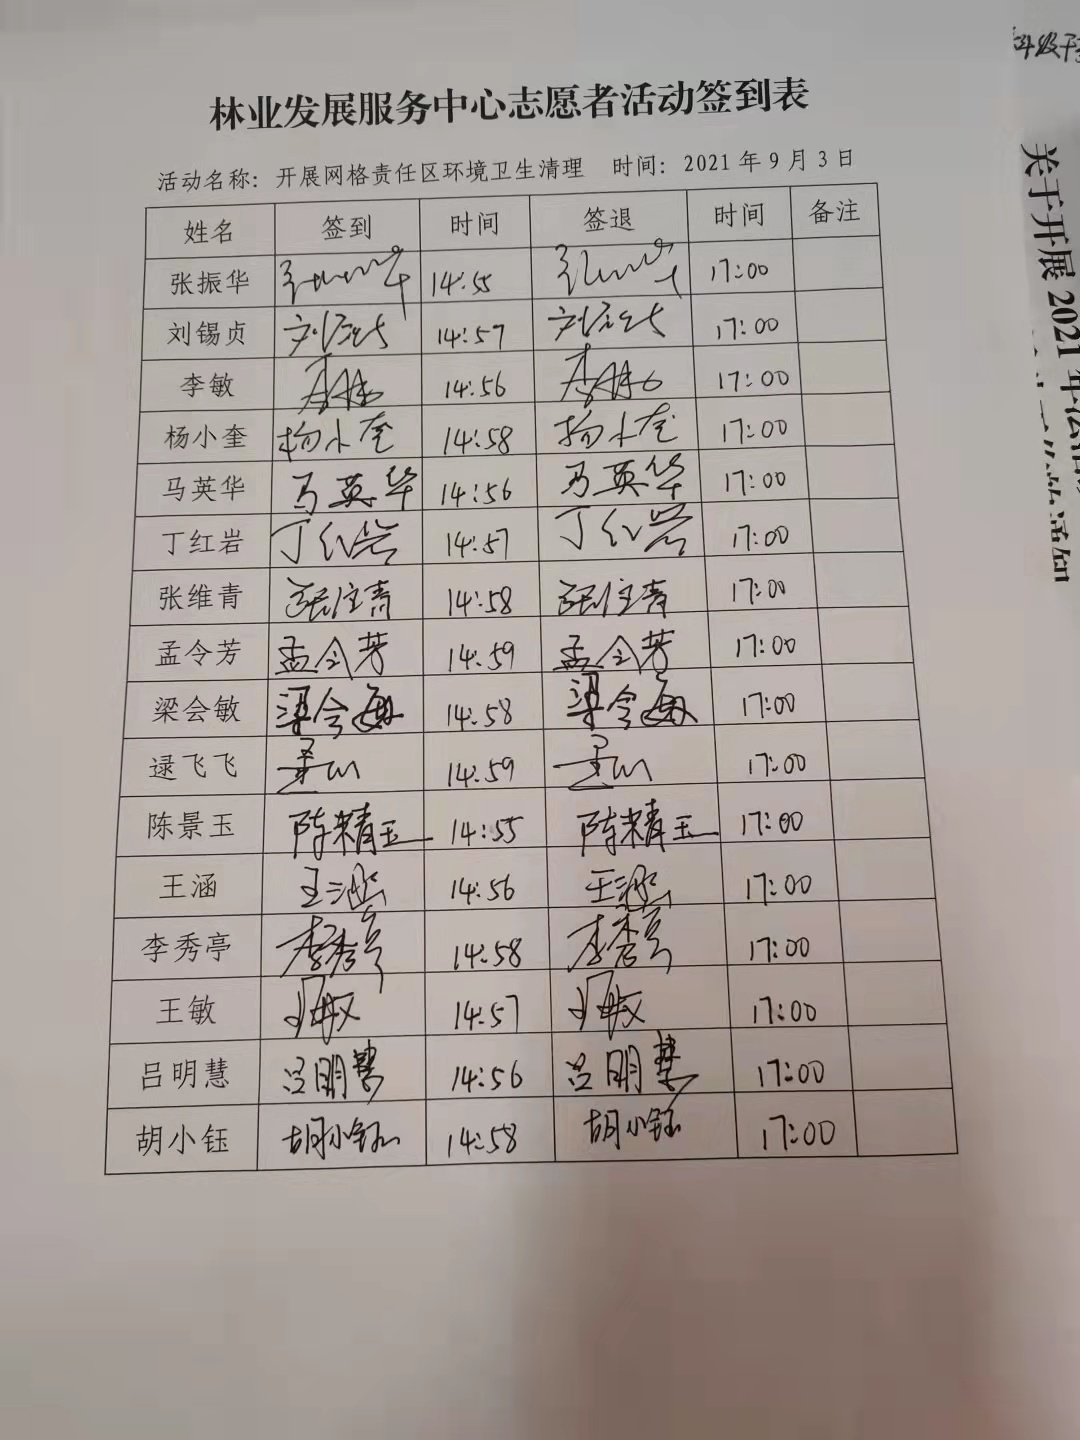 林业发展服务中心志愿者活动签到表
活动名称：开展网格责任区环境卫生清理 时间：2021 年 9 月 3 日
姓名 签到 时间 签退 时间 备注
张振华 14:55 17:00
刘锡贞 14:57 17:00
李敏 14:56 17:00
杨小奎 杨小奎 14:58 杨小奎 17:00
马英华 马英华 14:56 马英华 17:00
丁红岩 丁红岩 14:57 丁红岩 17:00
张维青 张维青 14:58 张维青 17:00
孟令芳 孟令芳 14:59 孟令芳 17:00
梁会敏 梁会敏 14:58 梁会敏 17:00
逯飞飞 14:59 17:00
陈景玉 14:55 17:00
王涵 王涵 14:56 王涵 17:00
李秀亭 李秀亭 14:58 李秀亭 17:00
王敏 王敏 14:57 王敏 17:00
吕明慧 吕明慧 14:56 吕明慧 17:00
胡小钰 胡小钰 14:58 胡小钰 17:00
科级干
关于开展 2021 年
通知